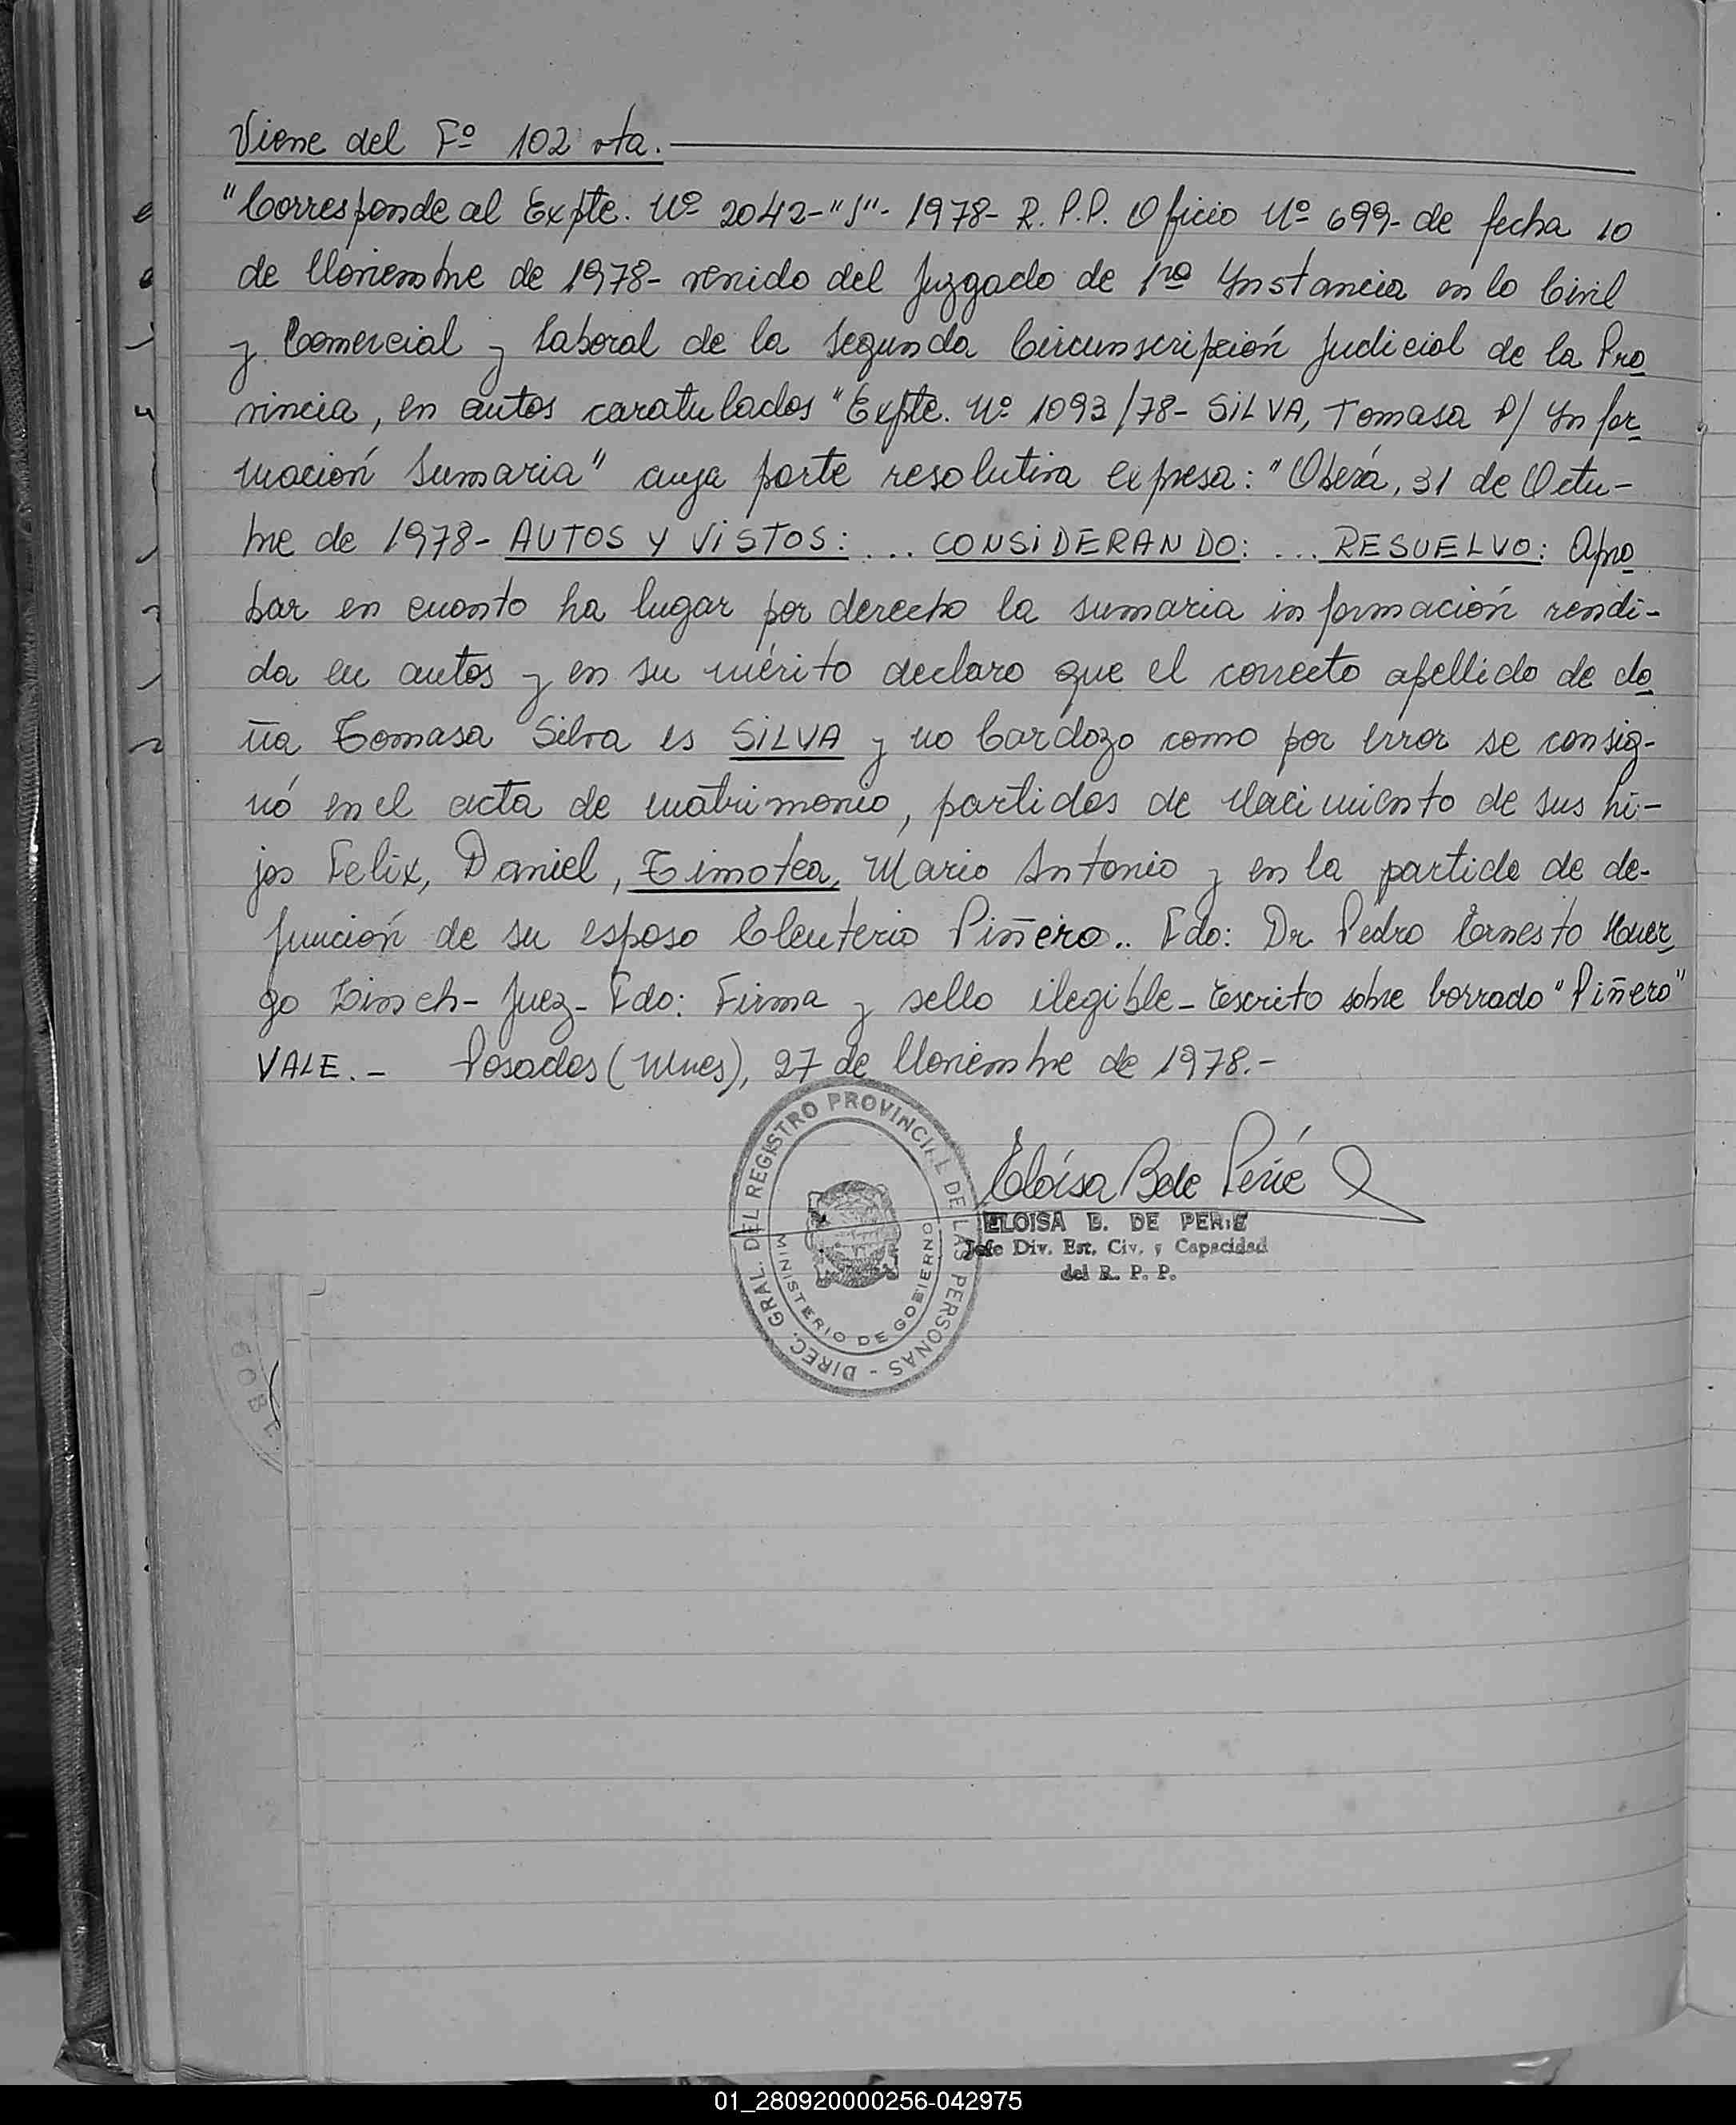 Viene del Fº 102 vta.
"Corresponde al Expte. Nº 2042-"S"- 1978- R. P. P. Oficio Nº 699- de fecha 10
de Noviembre de 1978- venido del Juzgado de 1ra Instancia en lo Civil
y Comercial y Laboral de la Segunda Circunscripción Judicial de la Pro
vincia, en autos caratulados "Expte. Nº 1093/78- SILVA, Tomasa P/ Infor
mación Sumaria" cuya parte resolutiva expresa: "Oberá, 31 de Octu-
bre de 1978- AUTOS Y VISTOS: ... CONSIDERANDO: ... RESUELVO: Apro
bar en cuanto ha lugar por derecho la sumaria información rendi-
da en autos y en su mérito declaro que el correcto apellido de do
ña Tomasa Silva es SILVA y no Cardozo como por error se consig-
nó en el acta de matrimonio, partidas de Nacimiento de sus hi-
jos Felix, Daniel, Timotea, Mario Antonio y en la partida de de-
función de su esposo Eleuterio Piñero.. Fdo: Dr. Pedro Ernesto Huer
go Linch- Juez- Fdo: Firma y sello ilegible- Escrito sobre borrado "Piñero"
VALE.- Posadas (Mnes), 27 de Noviembre de 1978.-
DIREC. GRAL. DEL REGISTRO PROVINCIAL DE LAS PERSONAS -
MINISTERIO DE GOBIERNO
Eloísa B de Perié
ELOISA B. DE PERIE
Jefe Div. Est. Civ. y Capacidad
del R. P. P.
GOB
01_280920000256-042975